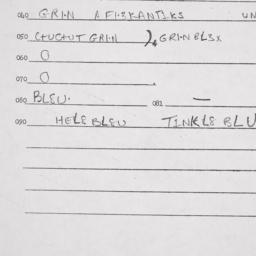 040 GRI·N AFIZKANTIKS UN
050 CHUCHUT GRI·N ), GRI·NBLSX
060 O
070 O
080 BLEU· 081 —
090 HELE BLEU TINKLE BLU